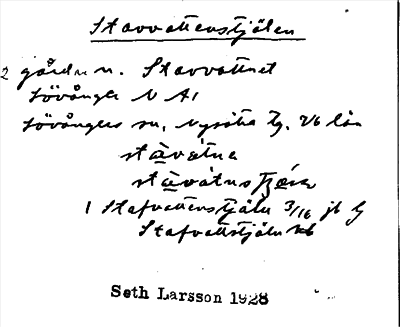 Stavvattenstjälen
2 gårdar n. Stavvattnet
Lövånger N A1
Lövångers sn, Nysätra tg. Vb län
stàvátna
stàvátnstjǽra
1 Stafvattenstjäln 3/16 jb
Stafvattstjäln kb
Seth Larsson 1928